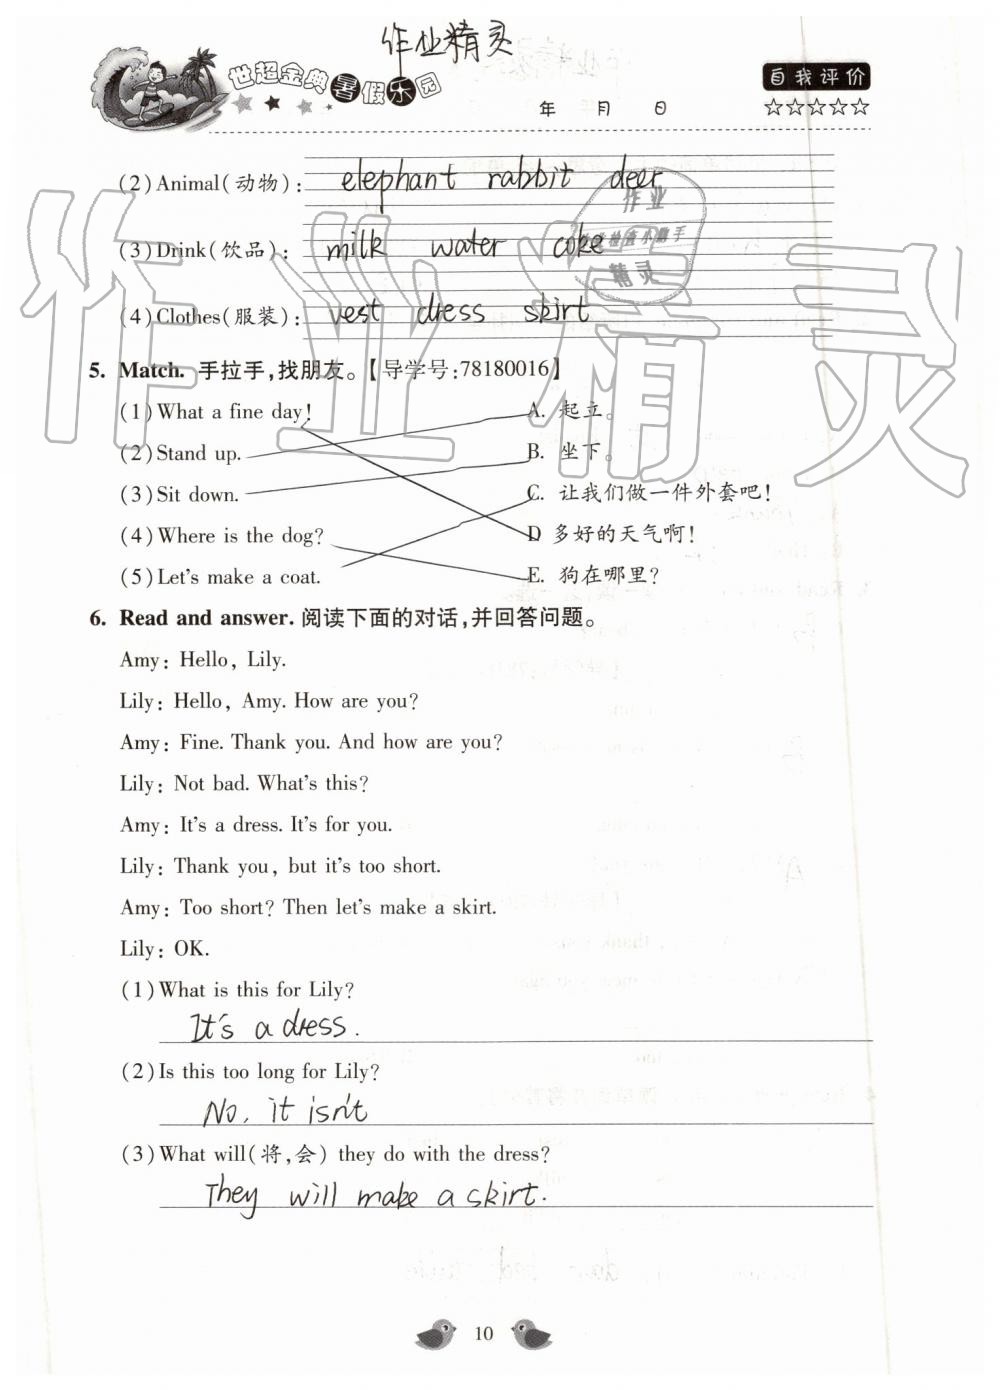 作业精灵
世超金典暑假乐园
自我评价
年 月 日 ☆☆☆☆☆
(2)Animal(动物): elephant rabbit deer
(3)Drink(饮品): milk water coke
(4)Clothes(服装): vest dress skirt
5. Match. 手拉手,找朋友。【导学号:78180016】
(1)What a fine day! A. 起立。
(2)Stand up. B. 坐下。
(3)Sit down. C. 让我们做一件外套吧!
(4)Where is the dog? D 多好的天气啊!
(5)Let's make a coat. E. 狗在哪里?
6. Read and answer. 阅读下面的对话,并回答问题。
Amy: Hello, Lily.
Lily: Hello, Amy. How are you?
Amy: Fine. Thank you. And how are you?
Lily: Not bad. What's this?
Amy: It's a dress. It's for you.
Lily: Thank you, but it's too short.
Amy: Too short? Then let's make a skirt.
Lily: OK.
(1)What is this for Lily?
It's a dress.
(2)Is this too long for Lily?
No, it isn't
(3)What will(将,会) they do with the dress?
They will make a skirt.
10
作业精灵
作业
精灵